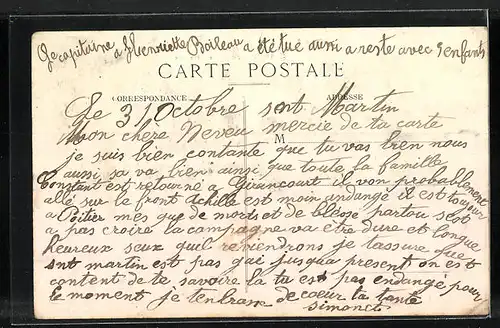 le capitaine a Henriette Boileau a été tué aussi a reste avec 5 enfants
CARTE POSTALE
CORRESPONDANCE ADRESSE
Le 31 Octobre snt Martin
Mon chere Neveu mercie de ta carte
M
je suis bien contante que tu vas bien nous
aussi sa va bien ainsi que toute la famille
Constant est retourné a Girancourt il von probablement
allé sur le front Achille est moin undangé il est toujour
a Poitier mes que de morts et de blessé partou set
a pas croire la campagne va être dure et longue
heureux seux qui reviendrons je tassure que
snt martin est pas gai jusqua present on est
content de te savoire la tu est pas endangé pour
le moment je tenbrasse de coeur ta tante
Simonet